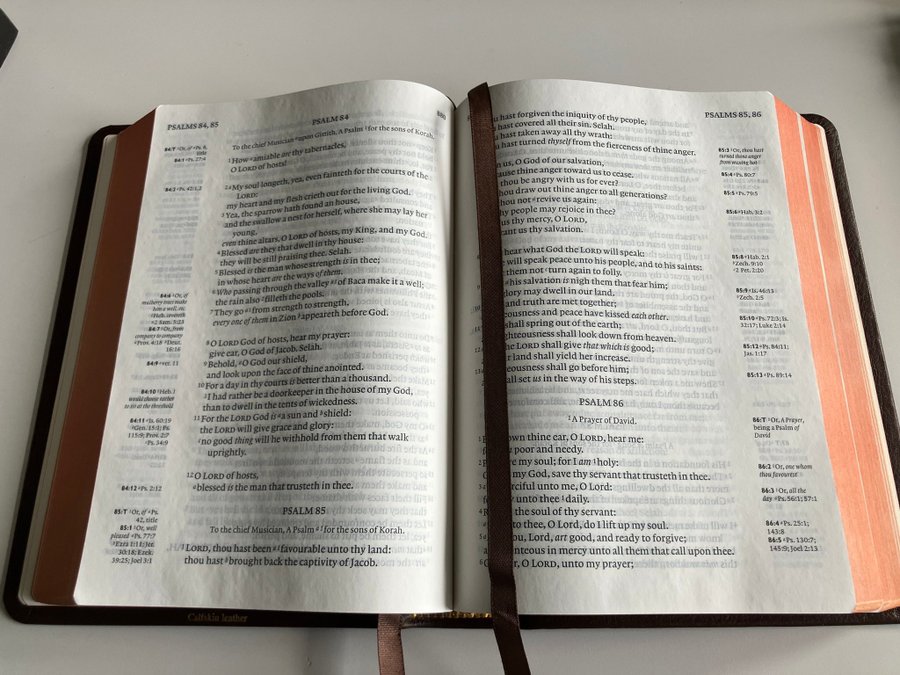 PSALMS 84, 85
PSALM 84
To the chief Musician upon Gittith, A Psalm for the sons of Korah.
1 How amiable are thy tabernacles,
O LORD of hosts!
2 My soul longeth, yea, even fainteth for the courts of the
LORD:
my heart and my flesh crieth out for the living God.
3 Yea, the sparrow hath found an house,
and the swallow a nest for herself, where she may lay her
young,
even thine altars, O LORD of hosts, my King, and my God.
4 Blessed are they that dwell in thy house:
they will be still praising thee. Selah.
5 Blessed is the man whose strength is in thee;
in whose heart are the ways of them.
6 Who passing through the valley of Baca make it a well;
the rain also filleth the pools.
7 They go from strength to strength,
every one of them in Zion appeareth before God.
8 O LORD God of hosts, hear my prayer:
give ear, O God of Jacob. Selah.
9 Behold, O God our shield,
and look upon the face of thine anointed.
10 For a day in thy courts is better than a thousand.
I had rather be a doorkeeper in the house of my God,
than to dwell in the tents of wickedness.
11 For the LORD God is a sun and shield:
the LORD will give grace and glory:
no good thing will he withhold from them that walk
uprightly.
12 O LORD of hosts,
blessed is the man that trusteth in thee.
PSALM 85
To the chief Musician, A Psalm for the sons of Korah.
1 LORD, thou hast been favourable unto thy land:
thou hast brought back the captivity of Jacob.
84:1 Ps. 27:4
84:3 Ps. 42:1,2
84:6 Or, of
mulberry trees make
him a well, etc.
2 Sam. 5:23
84:7 Or, from
company to company
Prov. 4:18 Deut.
16:16
84:9 ver. 11
84:10 Heb. I
would choose rather
to sit at the threshold
84:11 Is. 60:19
Gen. 15:1; Ps.
115:9; Prov. 2:7
Ps. 34:9
84:12 Ps. 2:12
85:T Or, of Ps.
42, title
85:1 Or, well
pleased Ps. 77:7
Ezra 1:11; Jer.
30:18; Ezek.
39:25; Joel 3:1
Calfskin leather
PSALMS 85, 86
hast forgiven the iniquity of thy people,
hast covered all their sin. Selah.
hast taken away all thy wrath:
hast turned thyself from the fierceness of thine anger.
us, O God of our salvation,
thine anger toward us to cease.
thou be angry with us for ever?
thou draw out thine anger to all generations?
thou not revive us again:
people may rejoice in thee?
us thy mercy, O LORD,
us thy salvation.
hear what God the LORD will speak:
will speak peace unto his people, and to his saints:
them not turn again to folly.
his salvation is nigh them that fear him;
glory may dwell in our land.
and truth are met together;
and peace have kissed each other.
shall spring out of the earth;
shall look down from heaven.
the LORD shall give that which is good;
land shall yield her increase.
shall go before him;
set us in the way of his steps.
PSALM 86
A Prayer of David.
down thine ear, O LORD, hear me:
poor and needy.
my soul; for I am holy:
my God, save thy servant that trusteth in thee.
unto me, O Lord:
unto thee daily.
the soul of thy servant:
to thee, O Lord, do I lift up my soul.
Lord, art good, and ready to forgive;
in mercy unto all them that call upon thee.
O LORD, unto my prayer;
85:3 Or, thou hast
turned thine anger
from waxing hot
85:4 Ps. 80:7
85:5 Ps. 79:5
85:6 Hab. 3:2
85:8 Hab. 2:1
Zech. 9:10
2 Pet. 2:20
85:9 Is. 46:13
Zech. 2:5
85:10 Ps. 72:3; Is.
32:17; Luke 2:14
85:12 Ps. 84:11;
Jas. 1:17
85:13 Ps. 89:14
86:T Or, A Prayer,
being a Psalm of
David
86:2 Or, one whom
thou favourest
86:3 Or, all the
day Ps. 56:1; 57:1
86:4 Ps. 25:1;
143:8
86:5 Ps. 130:7;
145:9; Joel 2:13